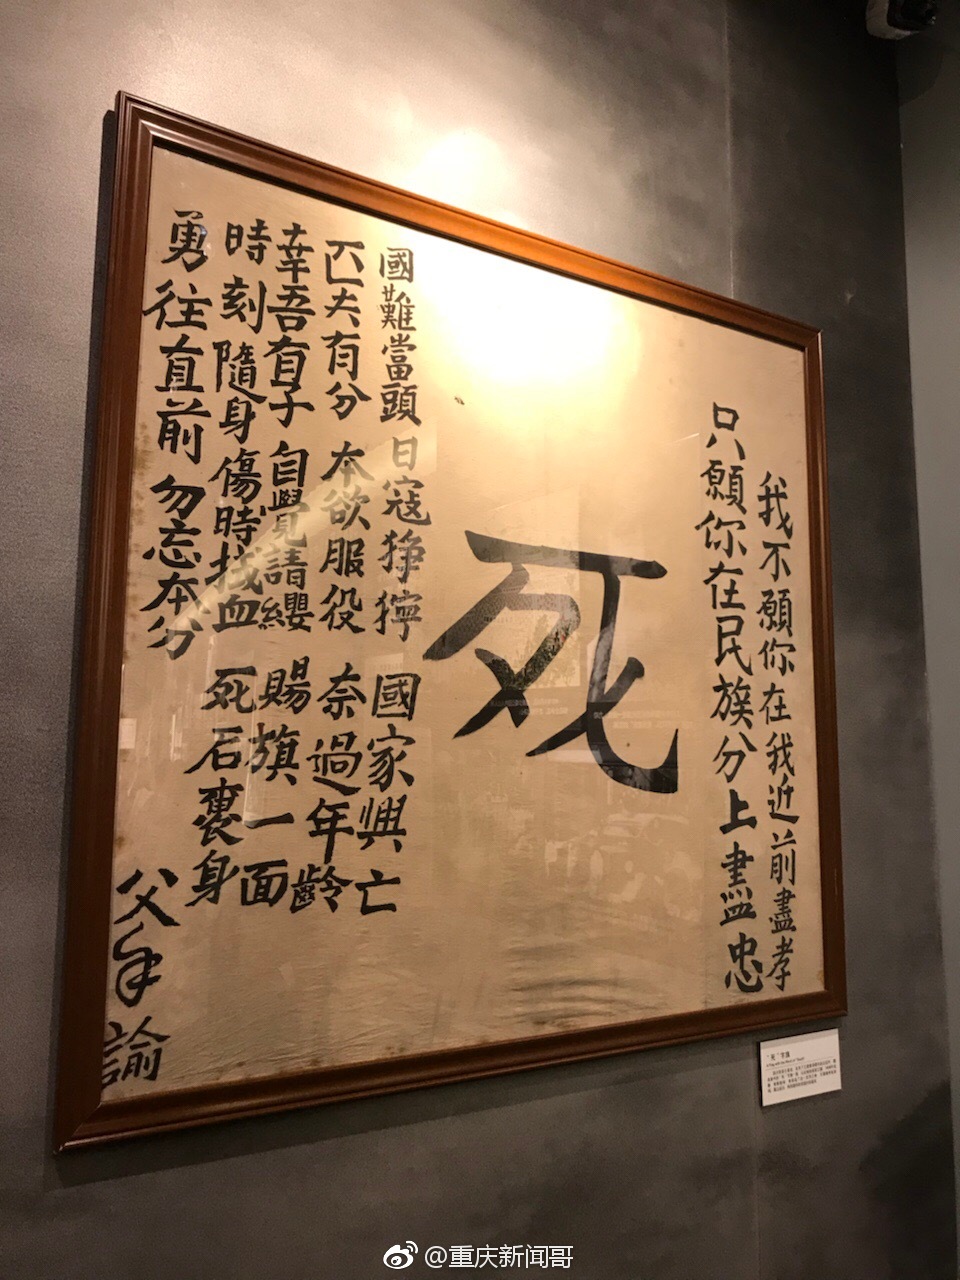 我不願你在我近前盡孝
只願你在民族分上盡忠
死
國難當頭 日寇猙獰 國家興亡
匹夫有分 本欲服役 奈過年齡
幸吾有子 自覺請纓 賜旗一面
時刻隨身 傷時拭血 死后裹身
勇往直前 勿忘本分
父手諭
“死”字旗
@重庆新闻哥